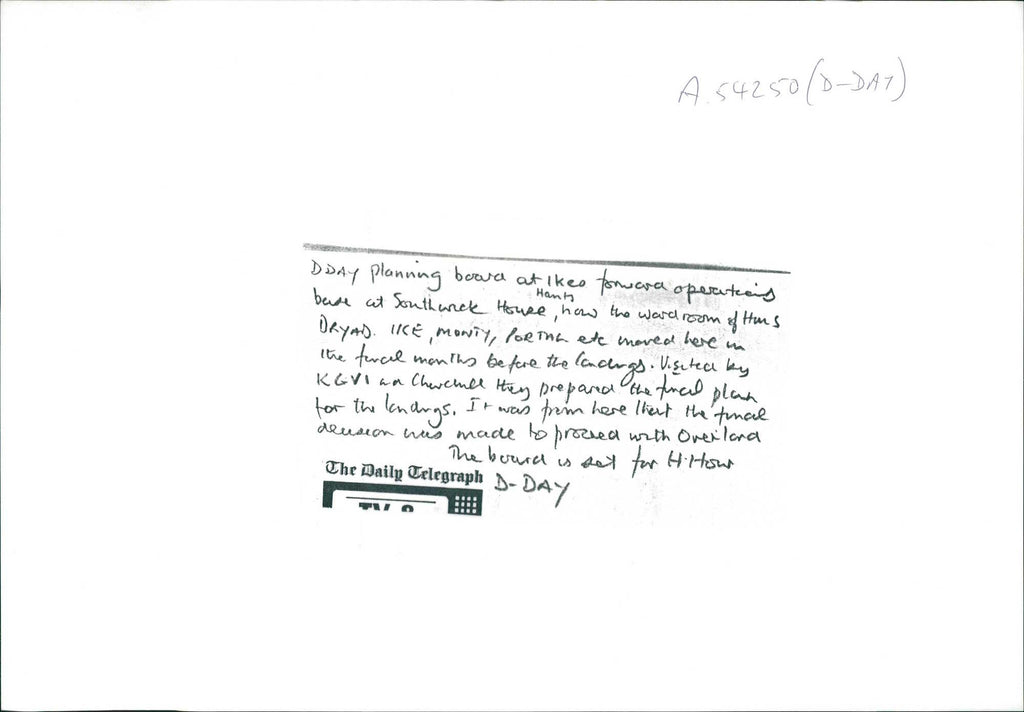 A.54250 (D-DAY)
D DAY planning board at Ikes forward operations
base at Southwick House, Hants, now the wardroom of HMS
DRYAD. IKE, MONTY, PORTAL etc moved here in
the final months before the landings. Visited by
KGVI and Churchill they prepared the final plan
for the landings. It was from here that the final
decision was made to proceed with Overlord
The board is set for H-Hour
D-DAY
The Daily Telegraph
TV &